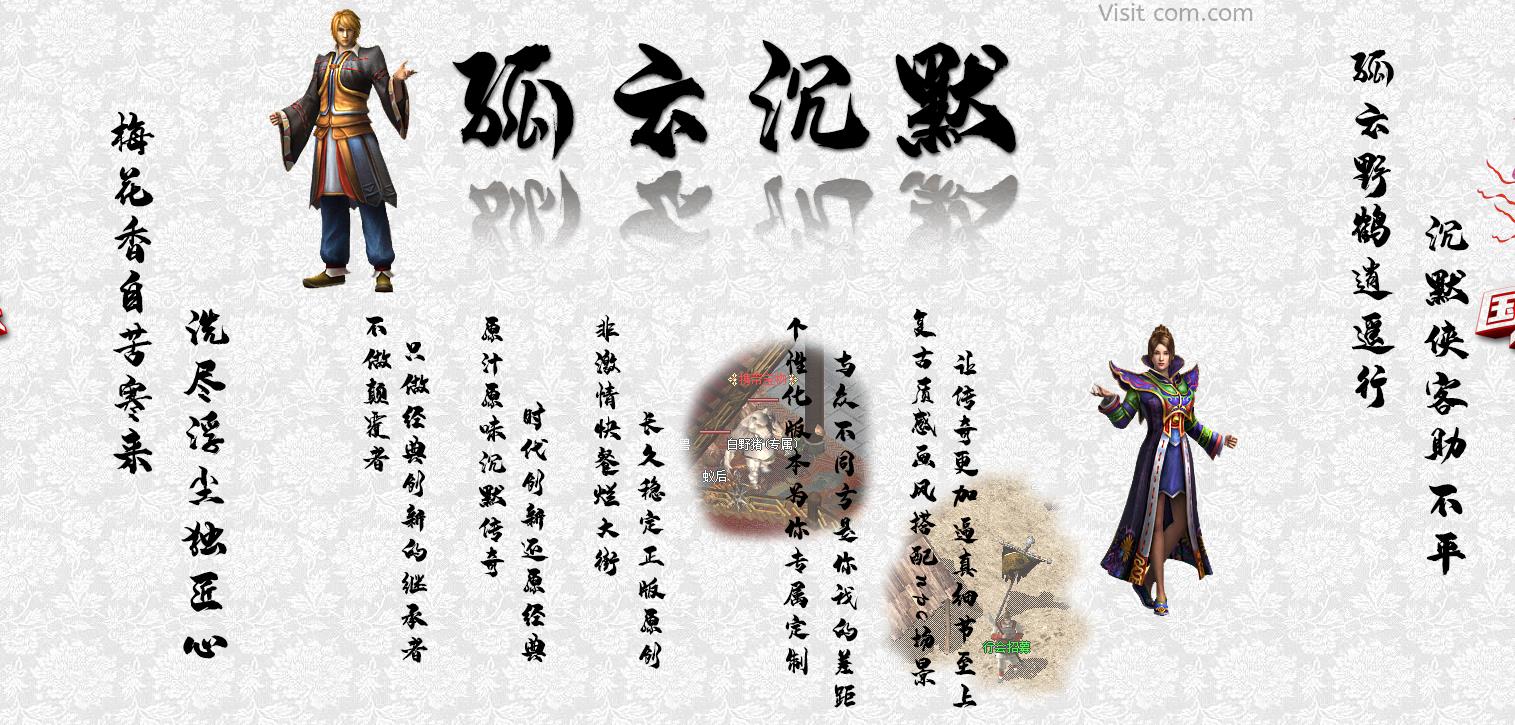 Visit com.com
孤云沉默
梅花香自苦寒来
洗尽浮尘独匠心
不做颠覆者
只做经典创新的继承者
原汁原味沉默传奇
时代创新还原经典
非激情快餐烂大街
长久稳定正版原创
个性化版本为你专属定制
与众不同方是你我的差距
复古质感画风搭配npc场景
让传奇更加逼真细节至上
孤云野鹤逍遥行
沉默侠客助不平
白野猪(专属)
蚁后
行会招募
国